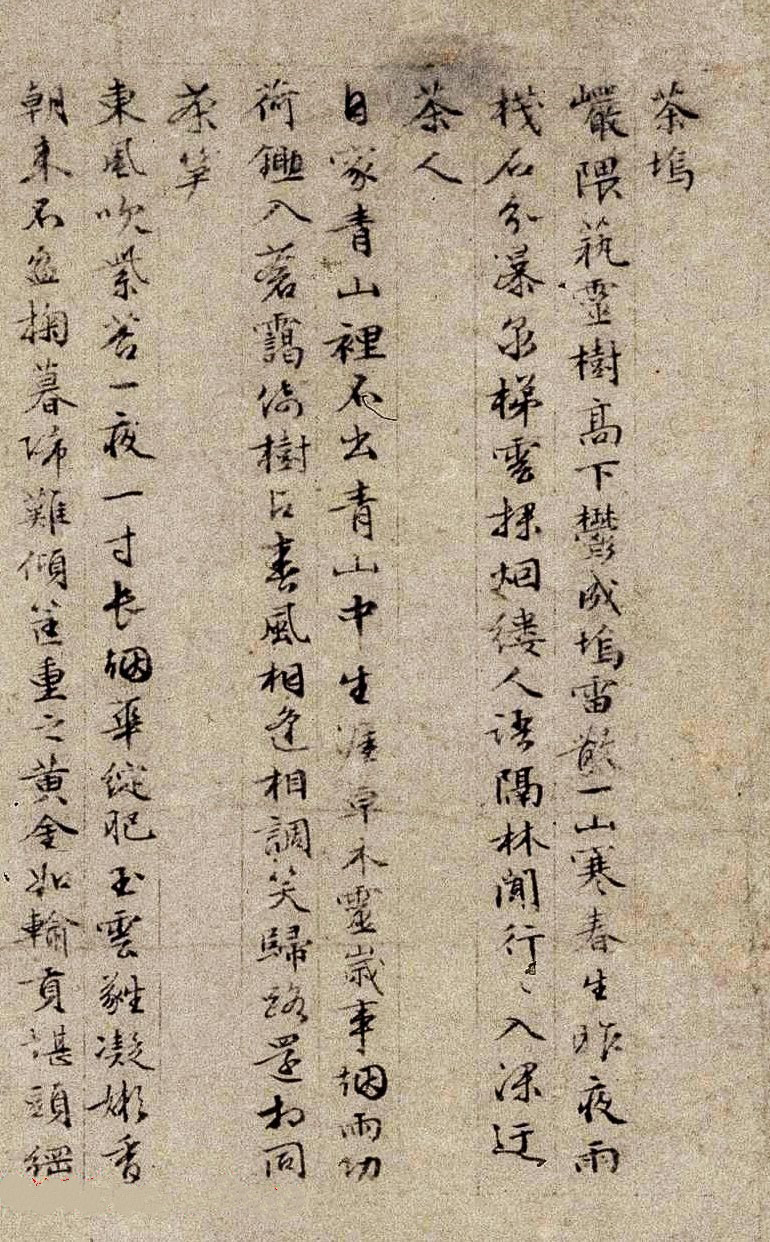 茶塢
巖隈藝靈樹高下鬱成塢雷散一山寒春生昨夜雨
棧石分瀑泉梯雲探烟縷人語隔林聞行〻入深迂
茶人
自家青山裡不出青山中生涯草木靈歲事烟雨功
荷鋤入蒼靄倚樹占春風相逢相調笑歸路還相同
茶笋
東風吹紫苔一夜一寸長烟華綻肥玉雲蕤凝嫩香
朝來不盈掬暮歸難傾筐重之黃金如輸貢堪頭綱